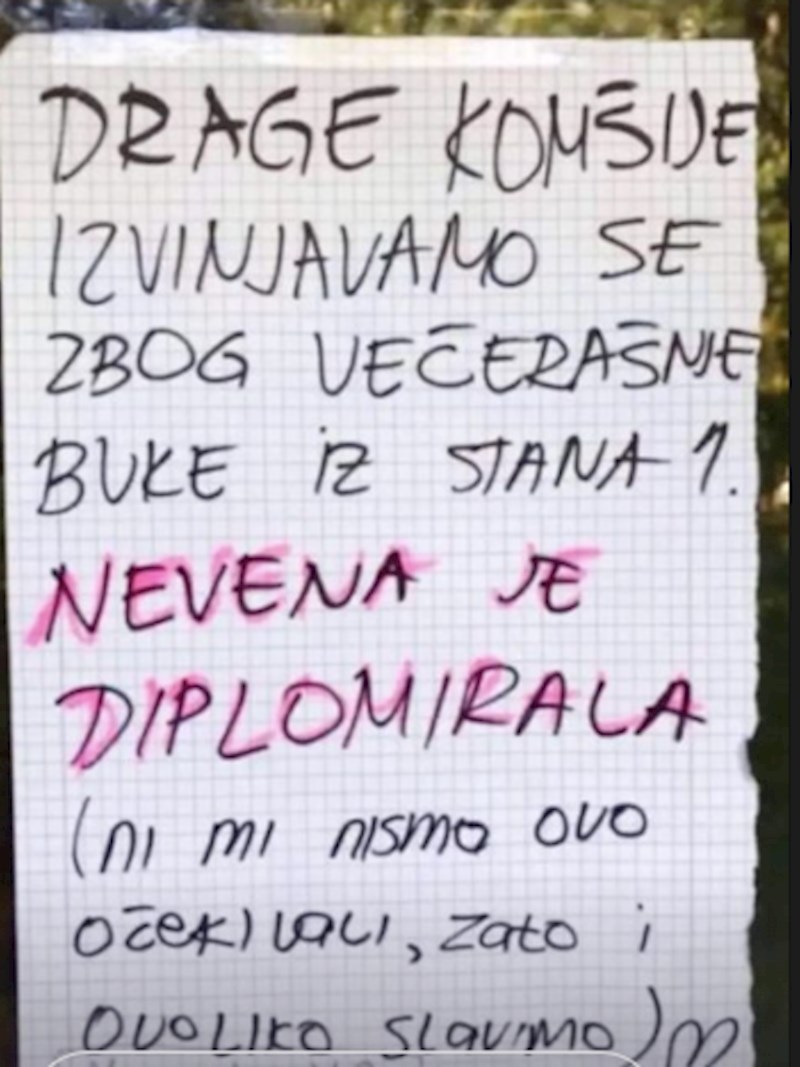 DRAGE KOMŠIJE
IZVINJAVAMO SE
ZBOG VEČERAŠNJE
BUKE iZ STANA 1.
NEVENA JE
DIPLOMIRALA
(ni mi nismo ovo
očekivali, zato i
ovoliko slavimo)♡